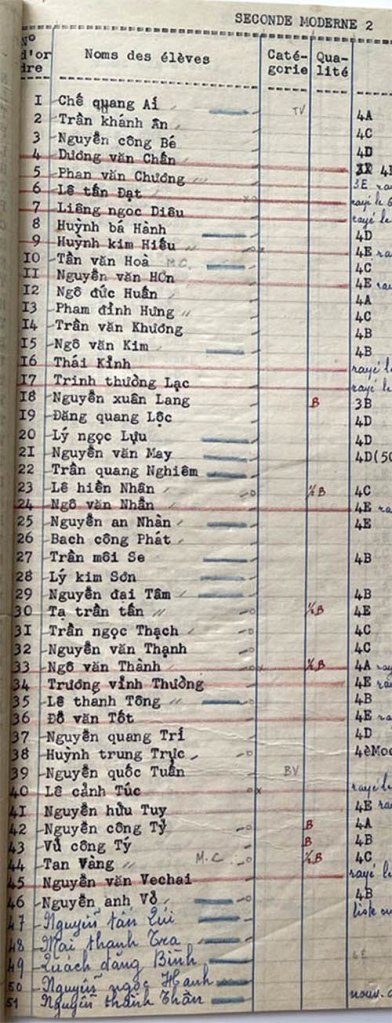 SECONDE MODERNE 2
N° d'ordre Noms des élèves Catégorie Qualité
1 Chế quang Ai 4A
2 Trần khánh Ân TV 4C
3 Nguyễn công Bé 4D
4 Dương văn Chấn
5 Phan văn Chương 3E
6 Lê tấn Đạt rayé le
7 Liêng ngọc Diêu rayé le
8 Huỳnh bá Hành 4D
9 Huỳnh kim Hiếu 4E
10 Tần văn Hoà M.C. 4C
11 Nguyễn văn HƠn 4E
12 Ngô đức Huấn 4A
13 Phạm đình Hưng 4C
14 Trần văn Khương 4B
15 Ngô văn Kim 4B
16 Thái Kỉnh rayé le
17 Trình thưởng Lạc rayé le
18 Nguyễn xuân Lang B 3B
19 Đăng quang Lộc 4D
20 Lý ngọc Lựu 4D
21 Nguyễn văn May 4D
22 Trần quang Nghiêm
23 Lê hiền Nhân ½B 4C
24 Ngô văn Nhẫn 4E
25 Nguyễn an Nhàn 4E
26 Bạch công Phát
27 Trần môi Se 4B
28 Lý kim Sơn
29 Nguyễn đại Tâm 4B
30 Tạ trần tấn ½B 4E
31 Trần ngọc Thạch 4C
32 Nguyễn văn Thạnh 4C
33 Ngô văn Thành ½B 4A
34 Trương vĩnh Thưởng 4E
35 Lê thanh Tông 4B
36 Đỗ văn Tốt 4E
37 Nguyễn quang Tri 4D
38 Huỳnh trung Trực 4èMod
39 Nguyễn quốc Tuấn BV
40 Lê cảnh Túc rayé le
41 Nguyễn hữu Tuy 4E
42 Nguyễn công Tỷ B 4A
43 Vũ công Tý B 4B
44 Tan Vàng M.C. ½B 4C
45 Nguyễn văn Vechai rayé le
46 Nguyễn anh Vũ 4B
47 Nguyễn tấn Qúi liste
48 Mai thanh Tra
49 Quách đăng Bình 4E
50 Nguyễn ngọc Hạnh
51 Nguyễn thành Thân nouv.